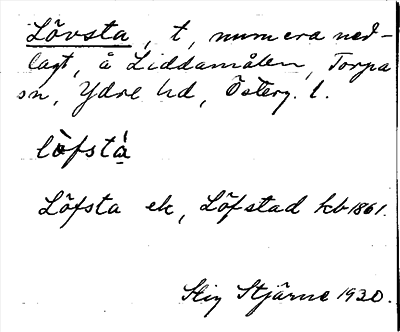 Lövsta, t, numera ned-
lagt, å Liddamålen, Torpa
sn, Ydre hd, Österg. l.
löfstà
Löfsta ek, Löfstad kb 1861.
Stig Stjärne 1930.